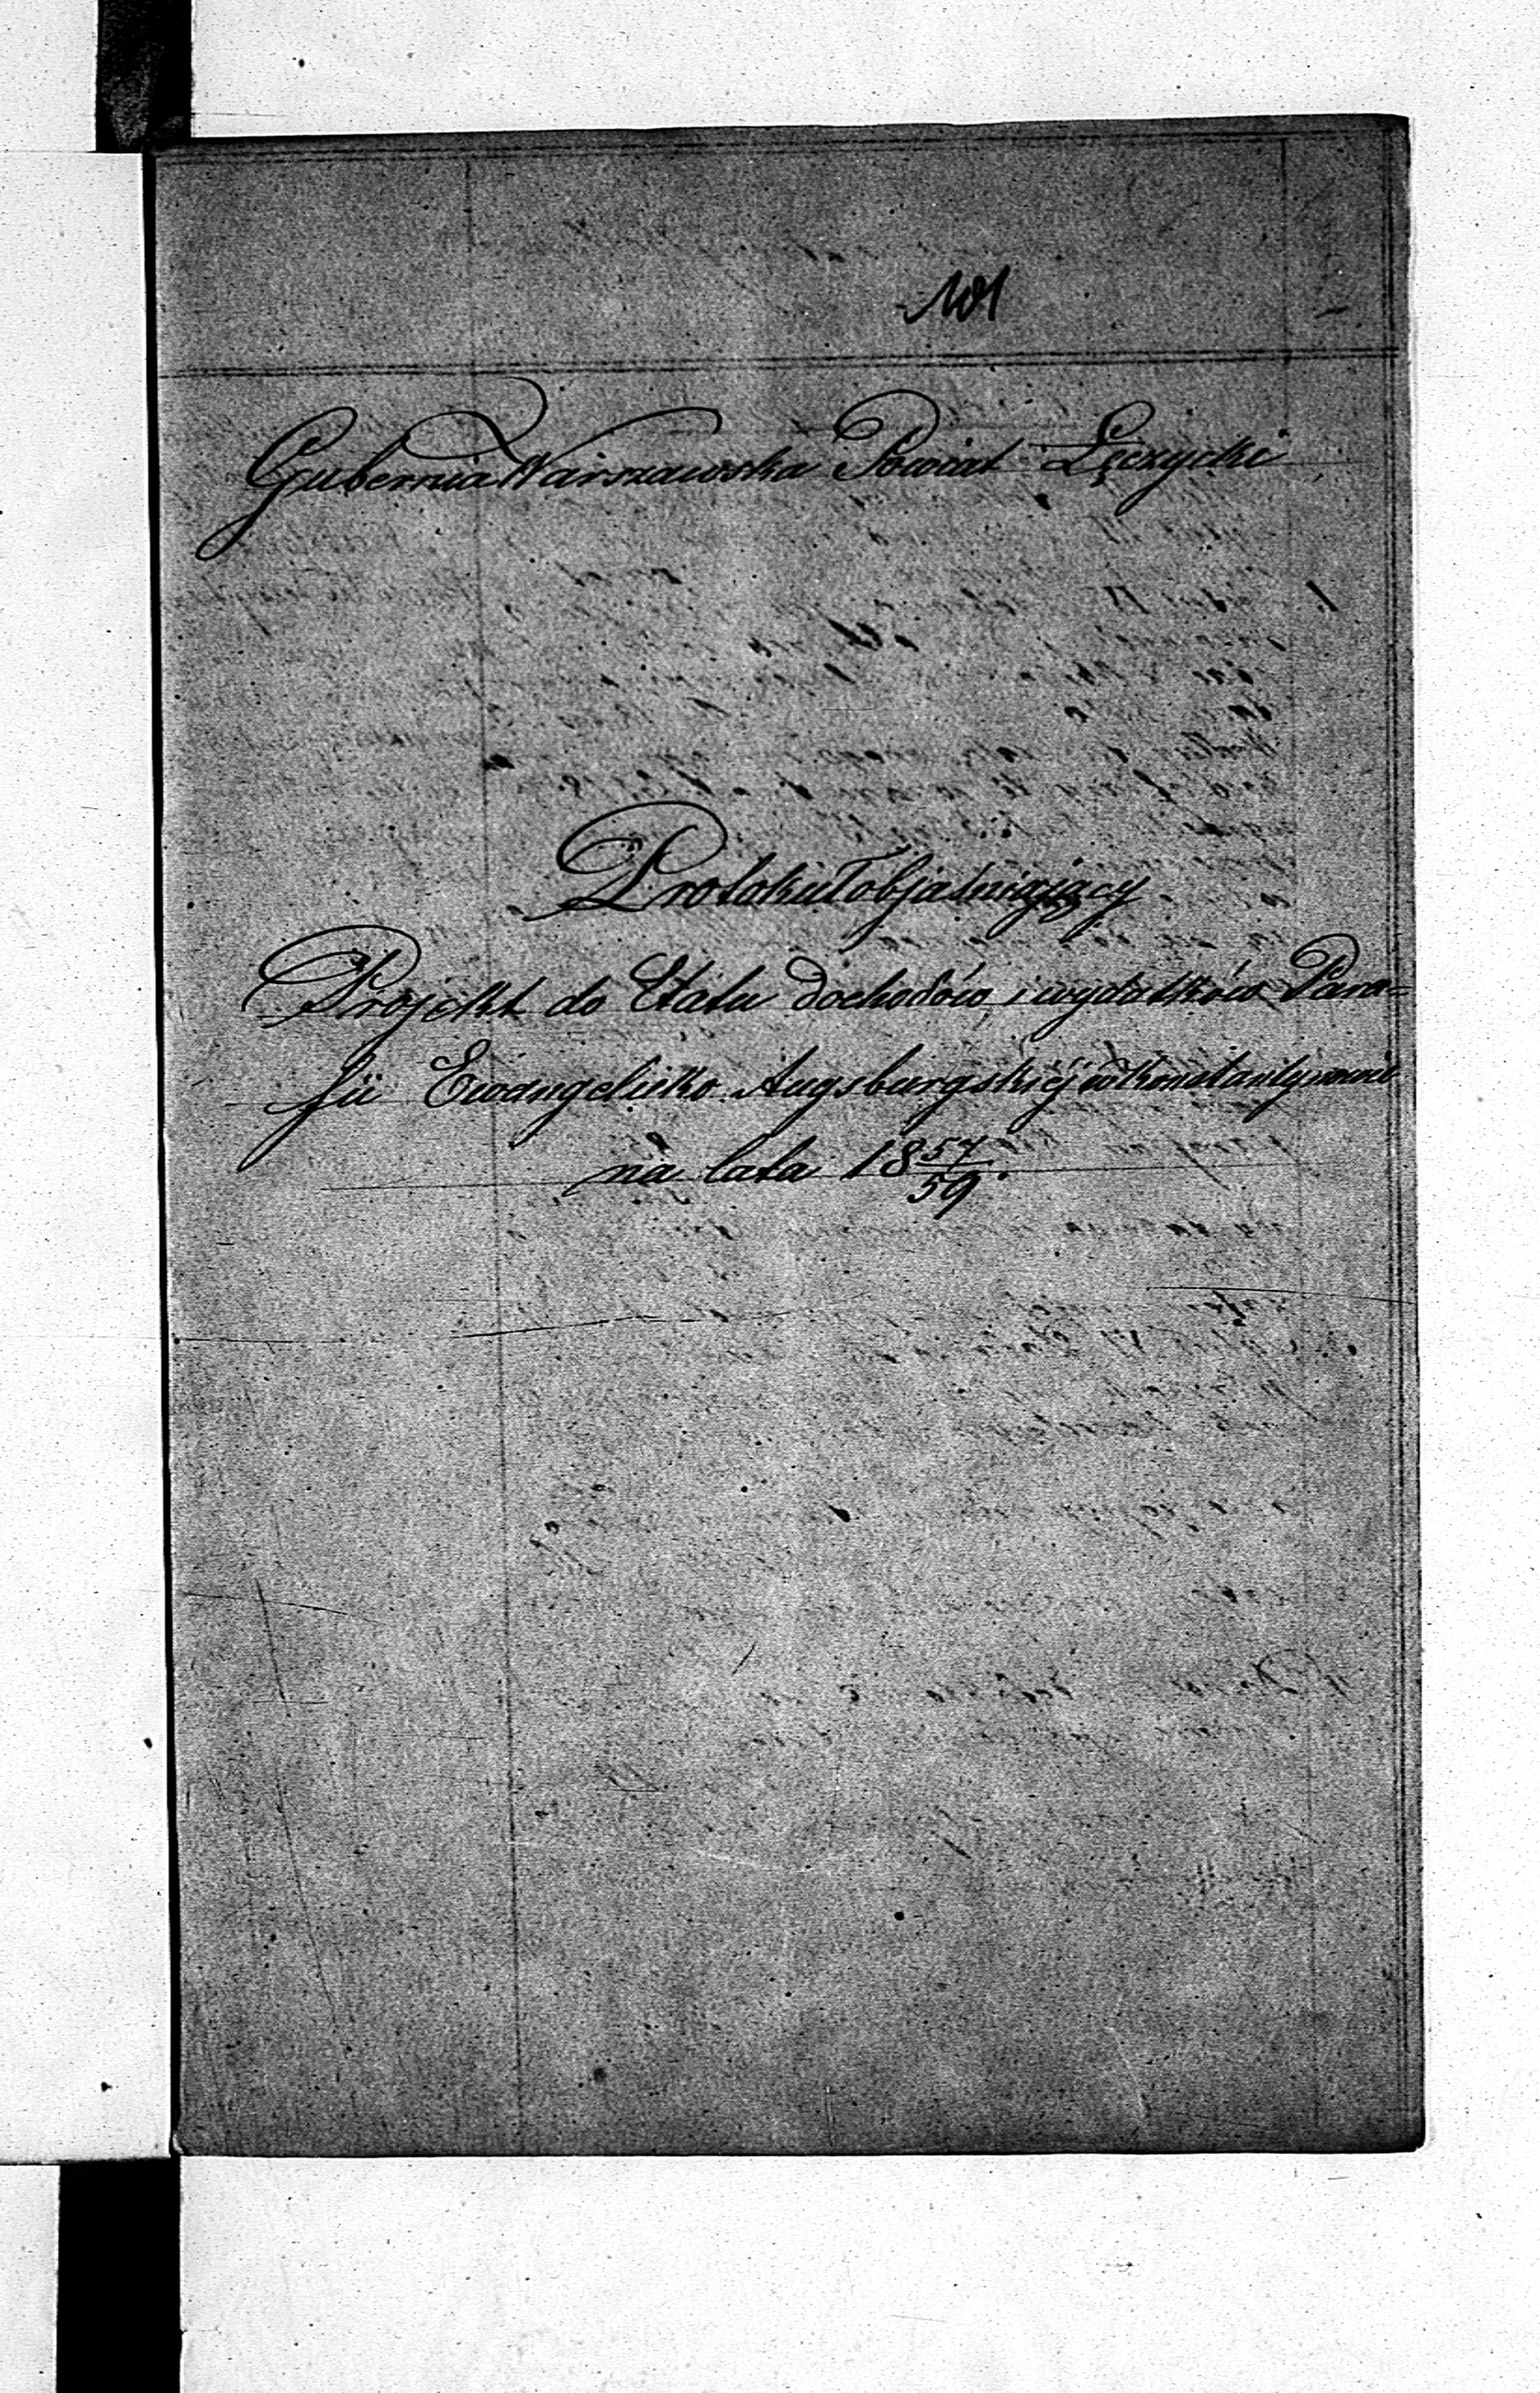 101
Gubernia Warszawska Powiat Łęczycki
Protokuł objaśniający
Projekt do Etatu dochodów i wydatków Para=
fii Ewangelicko Augsburgskiéj w Konstantynowie
na lata 18 57/59.